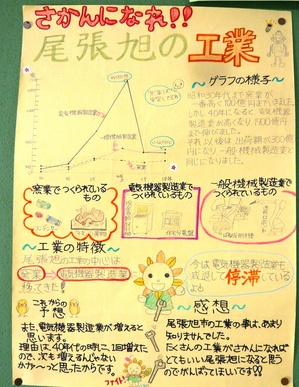 さかんになれ!!
尾張旭の工業
電気機器製造業
一般機械製造業
窯業
〜グラフの様子〜
昭和30年代まで窯業が
一番高く100億円までいきました。
しかし40年になると電気機器
製造業が高くなり1900億円
まで伸びました。
それ以後は出荷額が300億
円になり一般機械製造業と
同じになりました。
窯業でつくられている
もの
電気機器製造業
でつくられているもの
一般機械製造業で
つくられているもの
〜工業の特徴〜
尾張旭の工業の中心は
窯業→電気機器製造業
移ってきた!
今は電気機器製造業も
停滞しているよ
これからの
予想
また、電気機器製造業が増えると
思います。
理由は、40年代の時に、1回増えた
ので、次も増えるんじゃない
かな〜っと思ったからです。
ファイト!
〜感想〜
尾張旭市の工業の事は、あまり
知りませんでした。
たくさんの工業がさかんになれば
とてもいい尾張旭になると思う
のでがんばってほしいです!!